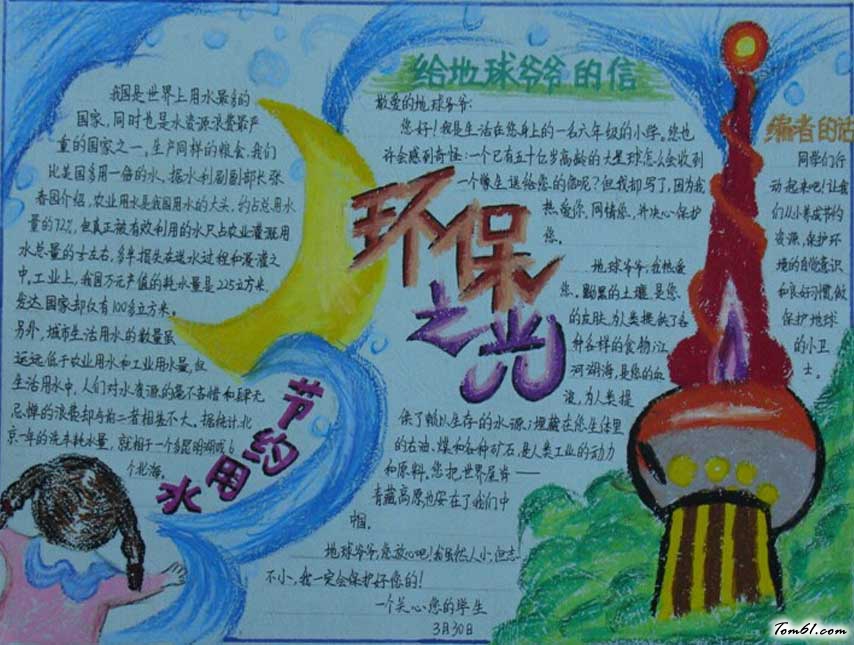 环保
之光
我国是世界上用水最多的
国家,同时也是水资源浪费最严
重的国家之一。生产同样的粮食,我们
比美国多用一倍的水。据水利副部长张
春园介绍,农业用水是我国用水的大头,约占总用水
量的72%,但真正被有效利用的水只占农业灌溉用
水总量的 左右,多半损失在送水过程和漫灌之
中。工业上,我国万元产值的耗水量是225立方米,
发达国家却仅有100多立方米。
另外,城市生活用水的数量虽
远远低于农业用水和工业用水量,但
生活用水中,人们对水资源的毫不吝惜和肆无
忌惮的浪费却与前二者相差不大。据统计,北
京一年的洗车耗水量,就相于一个多昆明湖或6
个北海。
节约
用
水
给地球爷爷的信
敬爱的地球爷爷:
您好!我是生活在您身上的一名六年级的小学。您也
许会感到奇怪:一个已有五十亿岁高龄的大星球怎么会收到
一个学生送给您的信呢?但我却写了,因为我
热爱您,同情您,并决心保护
您。
地球爷爷,我热爱
您。黝黑的土壤,是您
的皮肤,为人类提供了各
种各样的食物;江
河湖海,是您的血
液,为人类提
供了赖以生存的水源;埋藏在您身体里
的石油、煤和各种矿石,是人类工业的动力
和原料。您把世界屋脊——
青藏高原也安在了我们中
国。
地球爷爷,您放心吧!我虽然人小,但志
不小,我一定会保护好您的!
一个关心您的学生
3月30日
编者的话
同学们行
动起来吧!让我
们从小养成节约
资源,保护环
境的自觉意识
和良好习惯,做
保护地球
的小卫
士。
Tom61.com